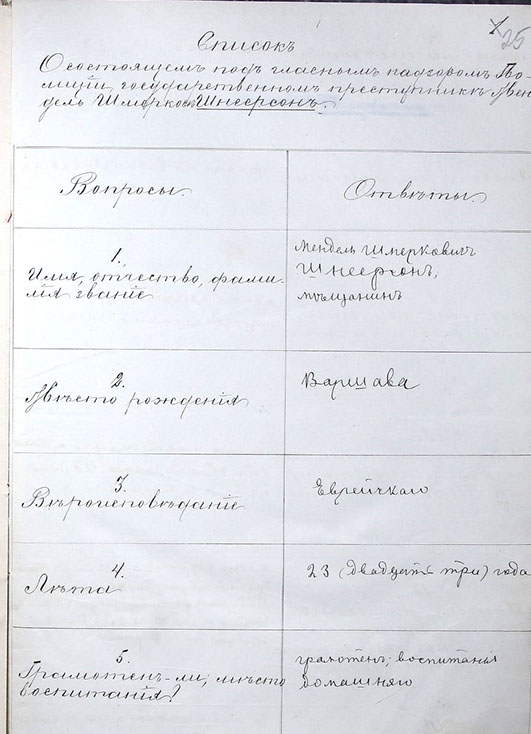 25
Списокъ
О состоящемъ подъ гласнымъ надзоромъ По-
лиціи, государственномъ преступникѣ Мен
дель Шмерков Шнеерсонъ.
Вопросы.
Отвѣты.
1.
Имя, отчество, фами-
лія, званіе
Мендель Шмерковичъ
Шнеерсонъ,
мѣщанинъ
2.
Мѣсто рожденія
Варшава
3.
Вѣроисповѣданіе
Еврейскаго
4.
Лѣта
23 (двадцать три) года
5.
Грамотенъ-ли; мѣсто
воспитанія?
грамотенъ; воспитанія
домашняго